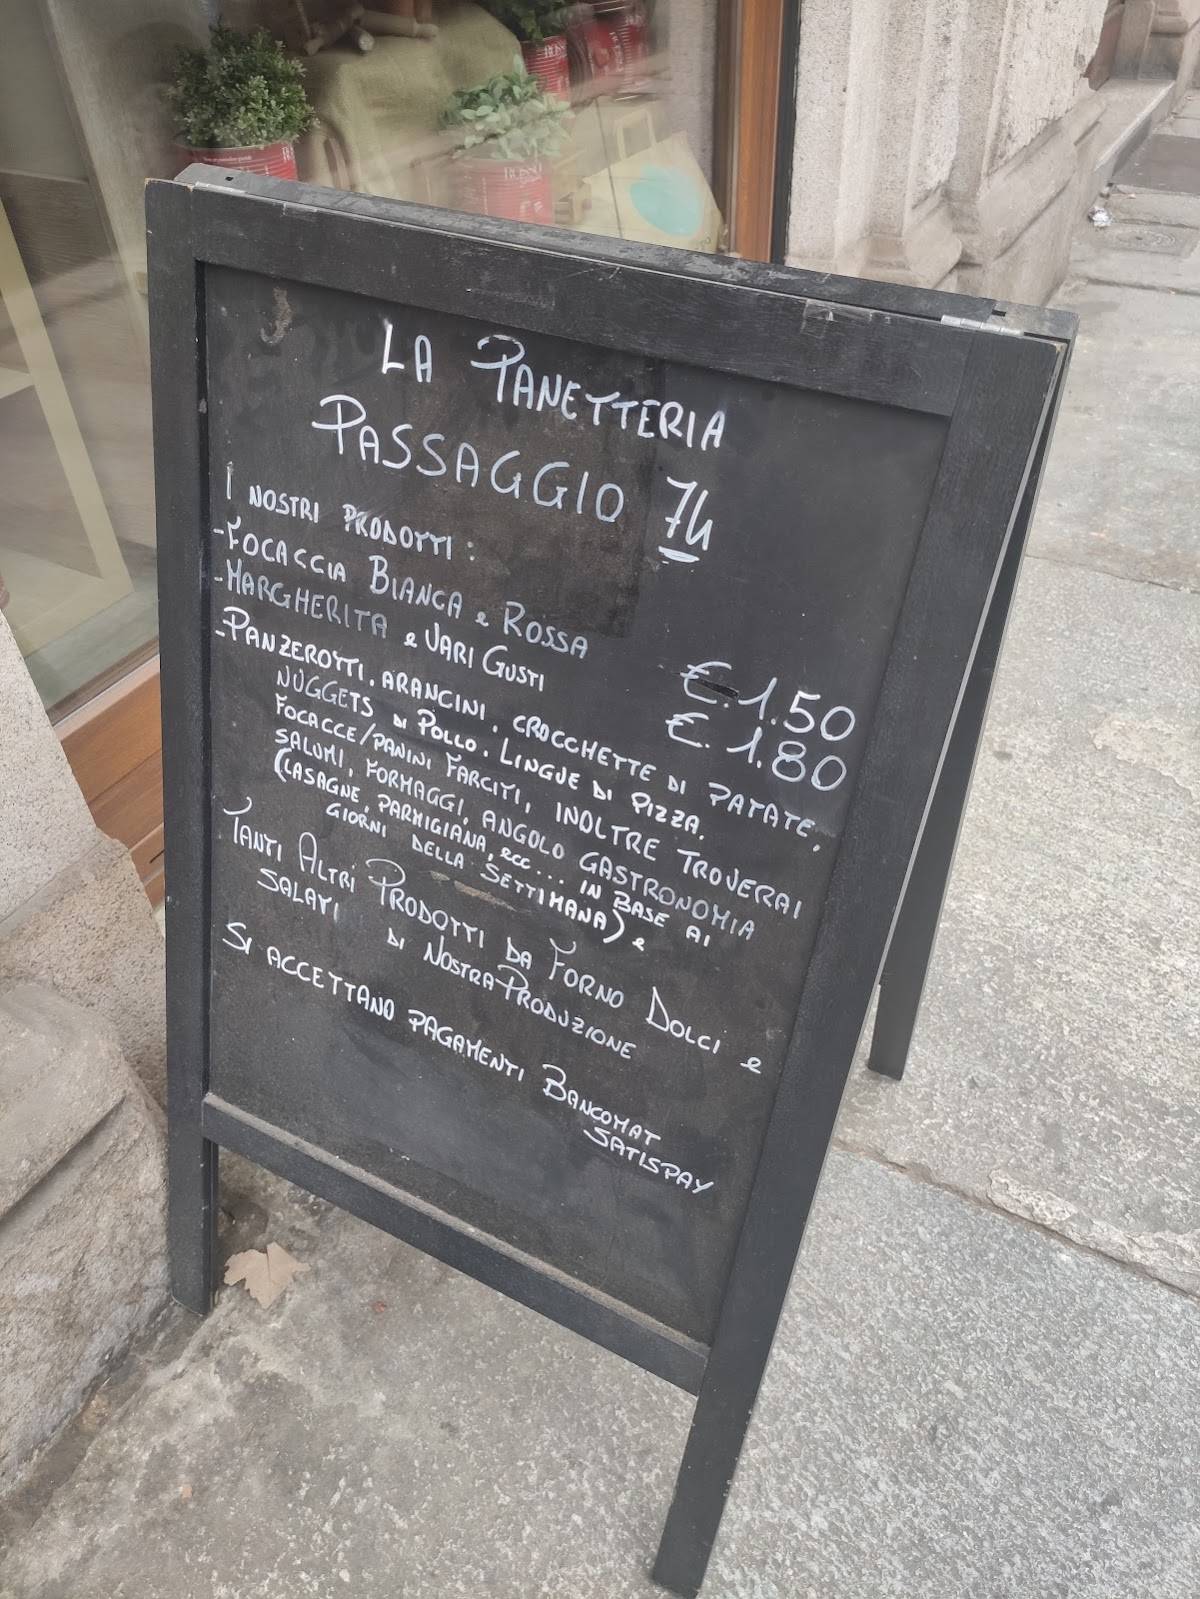 LA PANETTERIA
PASSAGGIO 74
I NOSTRI PRODOTTI:
-FOCACCIA BIANCA e ROSSA €.1.50
-MARGHERITA e VARI GUSTI €.1.80
-PANZEROTTI, ARANCINI, CROCCHETTE DI PATATE,
NUGGETS DI POLLO. LINGUE DI PIZZA.
FOCACCE/PANINI FARCITI, INOLTRE TROVERAI
SALUMI, FORMAGGI, ANGOLO GASTRONOMIA
(LASAGNE, PARMIGIANA, ecc... IN BASE AI
GIORNI DELLA SETTIMANA) e
TANTI ALTRI PRODOTTI DA FORNO DOLCI e
SALATI DI NOSTRA PRODUZIONE
SI ACCETTANO PAGAMENTI BANCOMAT
SATISPAY